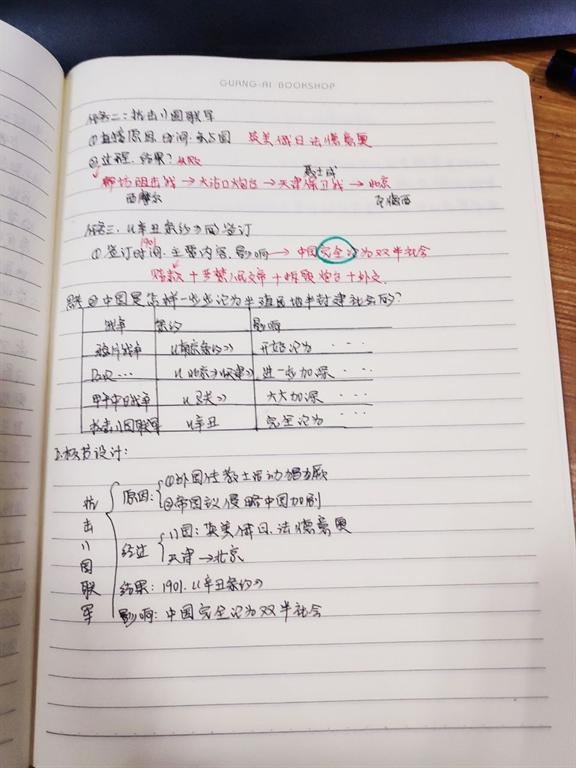 GUANG-AI BOOKSHOP
任务二:抗击八国联军
①直接原因.时间.第5图 英美俄日法德意奥
②过程.结果?
聂士成
廊坊阻击战→大沽口炮台→天津保卫战→北京
西摩尔 瓦德西
任务三.《辛丑条约》的签订
1901
①签订时间.主要内容.影响→中国完全沦为双半社会
赔款+严禁人民反帝+拆毁炮台+外交
思考②中国是怎样一步步沦为半殖民地半封建社会的?
战争 条约 影响
鸦片战争 《南京条约》 开始沦为 ...
进一步加深 ...
甲午中日战争 《马关》 大大加深 ...
抗击八国联军 《辛丑 完全沦为 ...
板书设计:
抗击八国联军
原因:①外国传教士活动猖獗
②帝国议侵略中国加剧
经过 八国:英美俄日.法德意奥
天津→北京
结果:1901.《辛丑条约》
影响:中国完全沦为双半社会